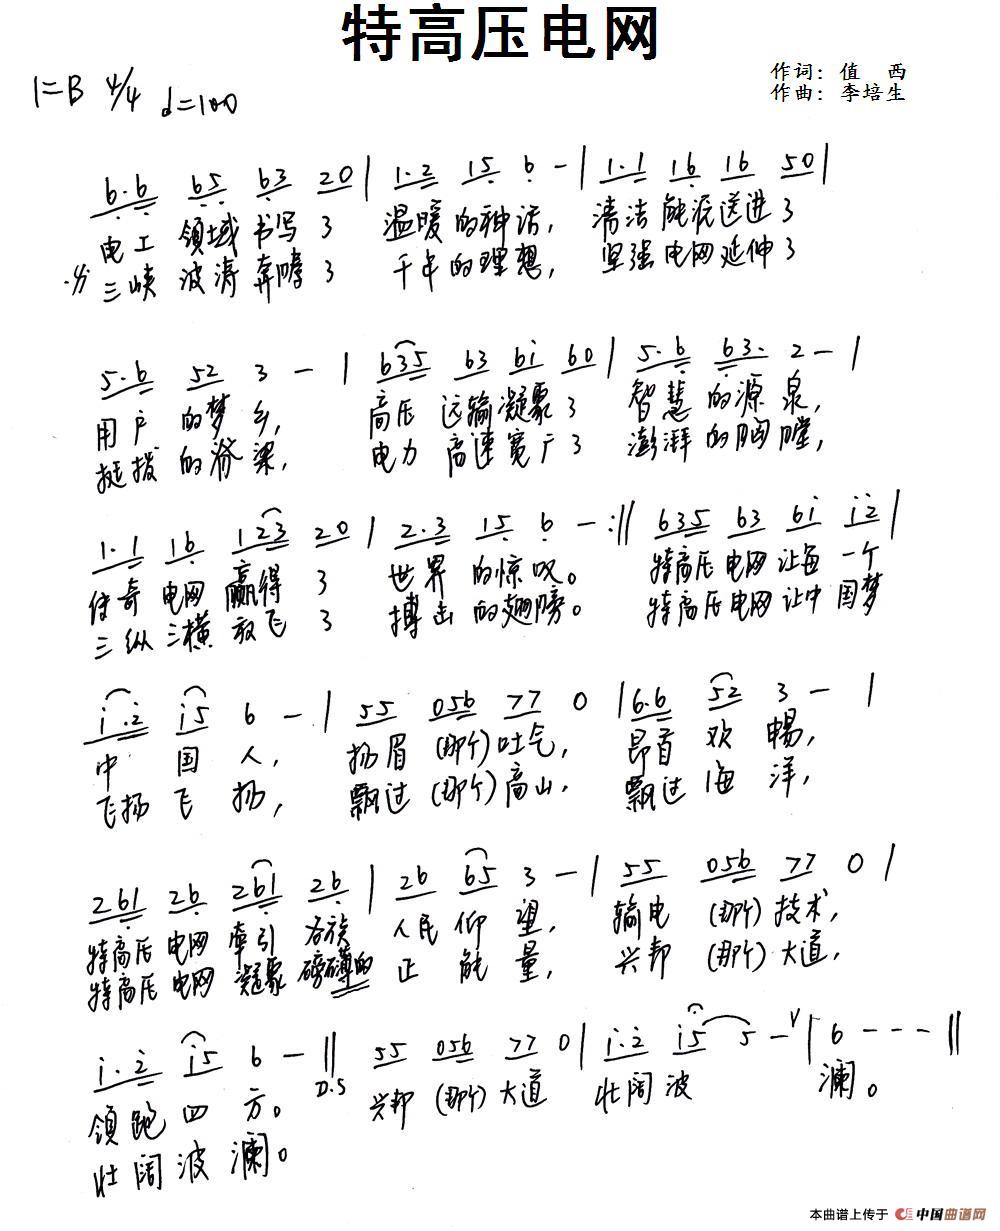 特高压电网
作词：值 西
作曲：李培生
1=B 4/4 ♩=100
6·6 65 63 20 | 1·2 15 6 - | 1·1 16 16 50 |
电工 领域 书写了 温暖的神话， 清洁能源送进了
三峡 波涛 奔嚎了 千年的理想， 坚强电网延伸了
5·6 52 3 - | 635 63 6i 60 | 5·6 63· 2 - |
用户 的梦乡， 高压 远输凝聚了 智慧 的源泉，
挺拔 的脊梁， 电力 高速宽广了 澎湃 的胸膛，
1·1 16 123 20 | 2·3 15 6 - :‖ 635 63 6i i2 |
传奇 电网 赢得 了 世界 的惊叹。 特高压 电网 让每 一个
三纵 三横 放飞 了 搏击 的翅膀。 特高压 电网 让中 国梦
i·2 i5 6 - | 55 056 77 0 | 6·6 52 3 - |
中 国 人， 扬眉 (那个) 吐气， 昂首 欢 畅，
飞扬 飞 扬， 飘过 (那个) 高山， 飘过 海 洋，
261 26 261 26 | 26 65 3 - | 55 056 77 0 |
特高压 电网 牵引 各族 人民 仰 望， 输电 (那个) 技术，
特高压 电网 凝聚 磅礴的 正 能 量， 兴邦 (那个) 大道，
i·2 i5 6 - ‖ D.S 55 056 77 0 | i·2 i5 5 - V | 6 - - - ‖
领跑 四 方。 兴邦 (那个) 大道 壮阔 波 澜。
壮阔 波 澜。
本曲谱上传于 中国曲谱网